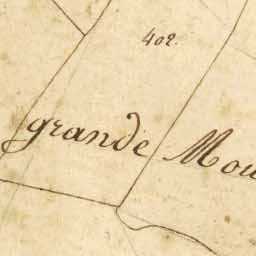 402.
grande Mou